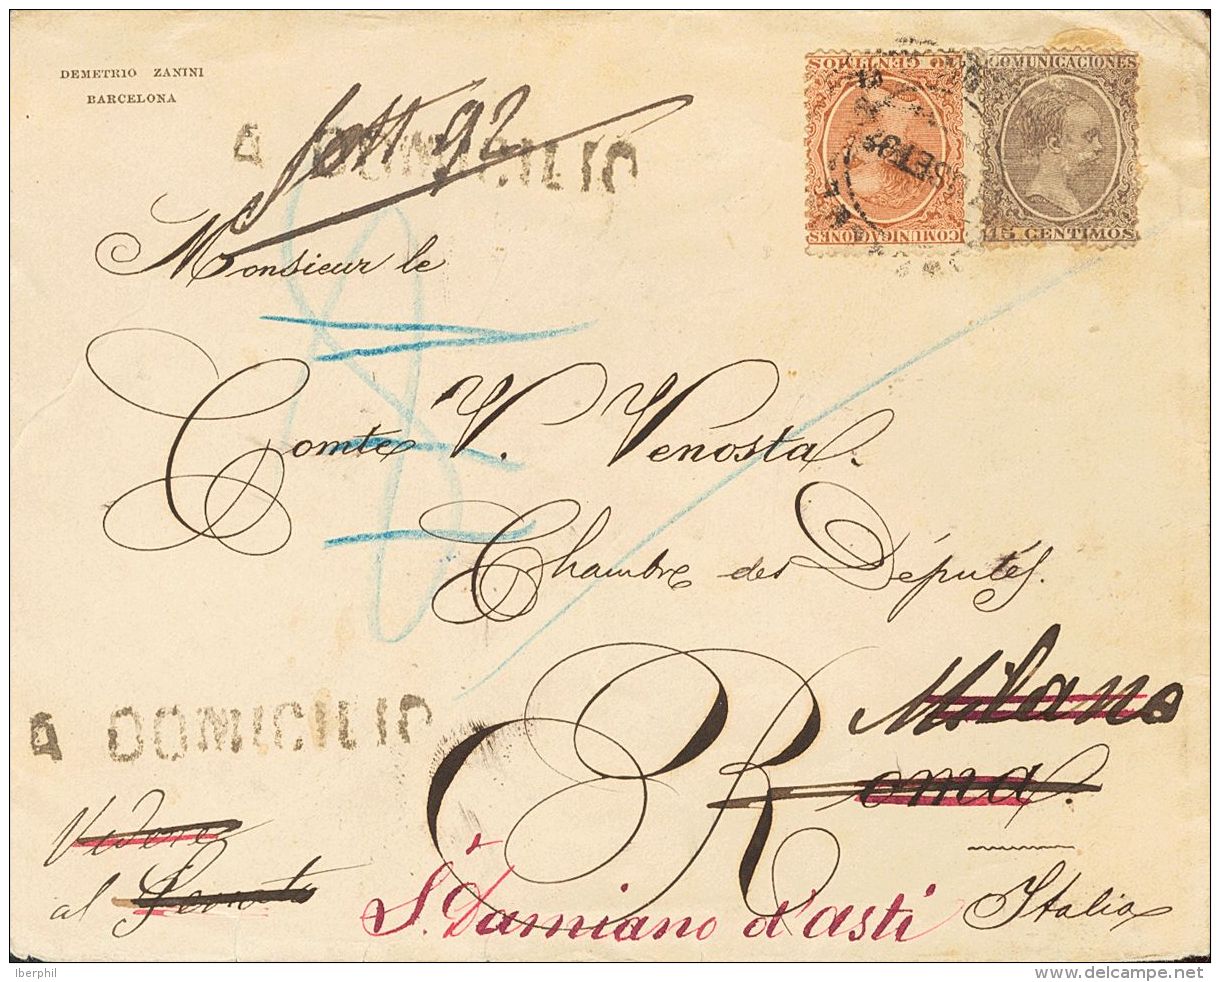 DEMETRIO ZANINI
BARCELONA
Sett 92
A DOMICILIO
COMUNICACIONES
COMUNICACIONES
15 CENTIMOS
SET 92
Monsieur le
Comte V. Venosta.
Chambre des Députés.
Milano
Roma.
A DOMICILIO
Vedere
al Senato
S. Damiano d'asti
Italia
Iberphil
delcampe.net